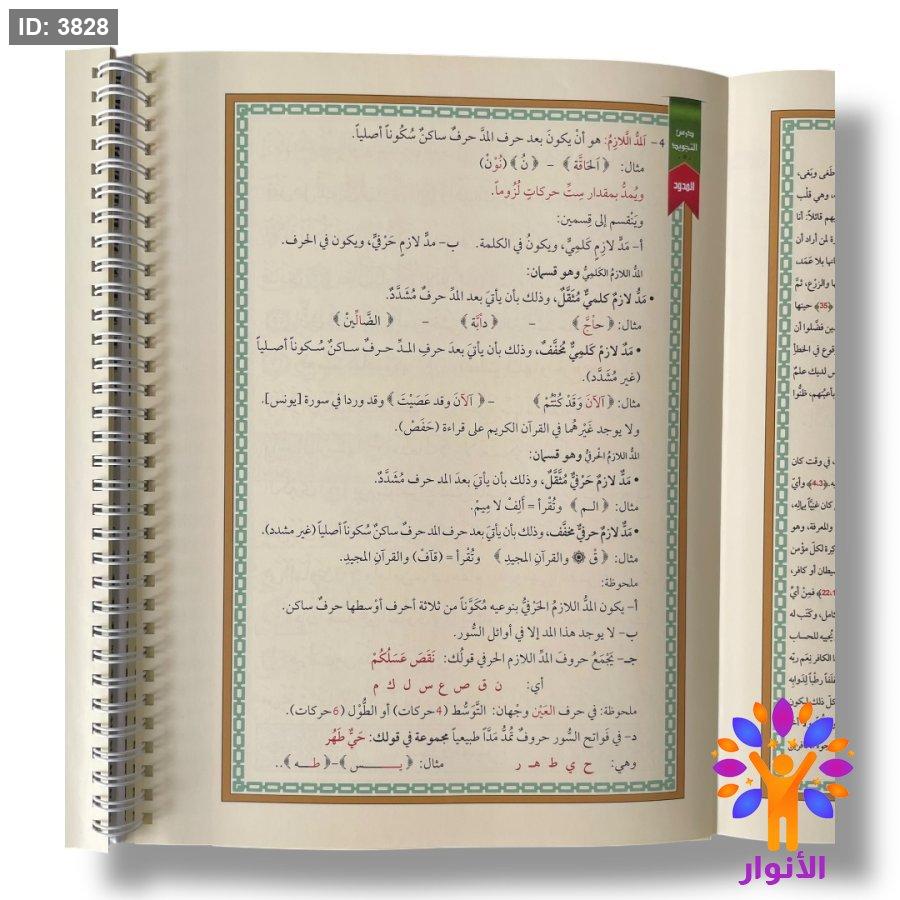 ID: 3828
درس التجويد
المدود
4- اَلمدُّ اللَّازِمُ: هو أنْ يكونَ بعد حرف المدَّ حرفٌ ساكنٌ سُكُوناً أصلياً.
مثال: ﴿ اَلحَاقَّة ﴾ - ﴿ نٌ ﴾ (نُوْنْ)
ويُمدُّ بمقدار سِتِّ حركاتٍ لُزُوماً.
ويَنْقسم إلى قِسمين:
أ- مَدٌّ لازِمٍ كَلِميٌّ، ويكونُ في الكلمة. ب- مدٌّ لازمٍ حَرْفيٌّ، ويكون في الحرف.
المدُّ اللازمُ الكَلِميُّ وهو قسمان:
• مَدٌّ لازمٌ كلميٌّ مُثقَّلٌ، وذلك بأن يأتيَ بعد المدِّ حرفٌ مُشَدَّدٌ.
مثال: ﴿ حاْجَّ ﴾ - ﴿ دآبَّة ﴾ - ﴿ الضَّالِّينْ ﴾
• مَدٌ لازمٌ كَلميٌّ مُخَّففٌ، وذلك بأن يأتيَ بعدَ حرفِ المدِّ حرفٌ ساكنٌ سُكوناً أصلياً
(غير مُشَدَّد).
مثال: ﴿ آلآنَ وَقَدْ كُنْتُمْ ﴾ - ﴿ آلآنَ وقد عَصَيْتَ ﴾ وقد وردا في سورة [يونس]،
ولا يوجد غَيْرهُما في القرآن الكريم على قراءة (حَفَصْ).
المدُّ اللازمُ الحرفيُّ وهو قسمان:
• مَدٌّ لازمٌ حَرْفيٌّ مُثَّقَّلٌ، وذلك بأن يأتيَ بعدَ المد حرف مُشَدَّدٌ.
مثال: ﴿ الـم ﴾ وتُقْرأ = أَلِفْ لا مِيمْ.
• مَدٌّ لازمٌ حرفيٌّ مخفَّف، وذلك بأن يأتيَ بعدَ حرف المد حرفٌ ساكنٌ سُكوناً أصلياً (غير مشدد).
مثال: ﴿ قْ ۞ والقرآنِ المجيدِ ﴾ وتُقْرأ = (قآفْ) والقرآنِ المجيدِ.
ملحوظة:
أ- يكون المدُّ اللازمُ الحَرْفيُّ بنوعيه مُكَوَّناً من ثلاثة أحرف أوْسطها حرفٌ ساكن.
ب- لا يوجد هذا المد إلا في أوائل السُّور.
جـ- يَجْمَعُ حروفَ المدِّ اللازم الحرفي قولُك: نَقَصَ عَسَلُكُمْ
أي: ن ق ص ع س ل ك م
ملحوظة: في حرف العَيْن وجْهان: التَّوَسُّط (4حركات) أو الطُّوْل (6حركات).
د- في فَواتح السُّور حروفٌ تُمدُّ مَدّاً طبيعياً مجموعة في قولك: حَيٌّ طَهُر
وهي: ح ي ط هـ ر مثال: ﴿ يـــس ﴾-﴿ طــه ﴾..
طَغى وبَغى،
، وهي قلْب
يهم قائلاً: أنا
رة لمن أراد أن
انها بلا عَمَد،
ها والزرْع، ثمَّ
﴿35﴾ حينها
الأنوار